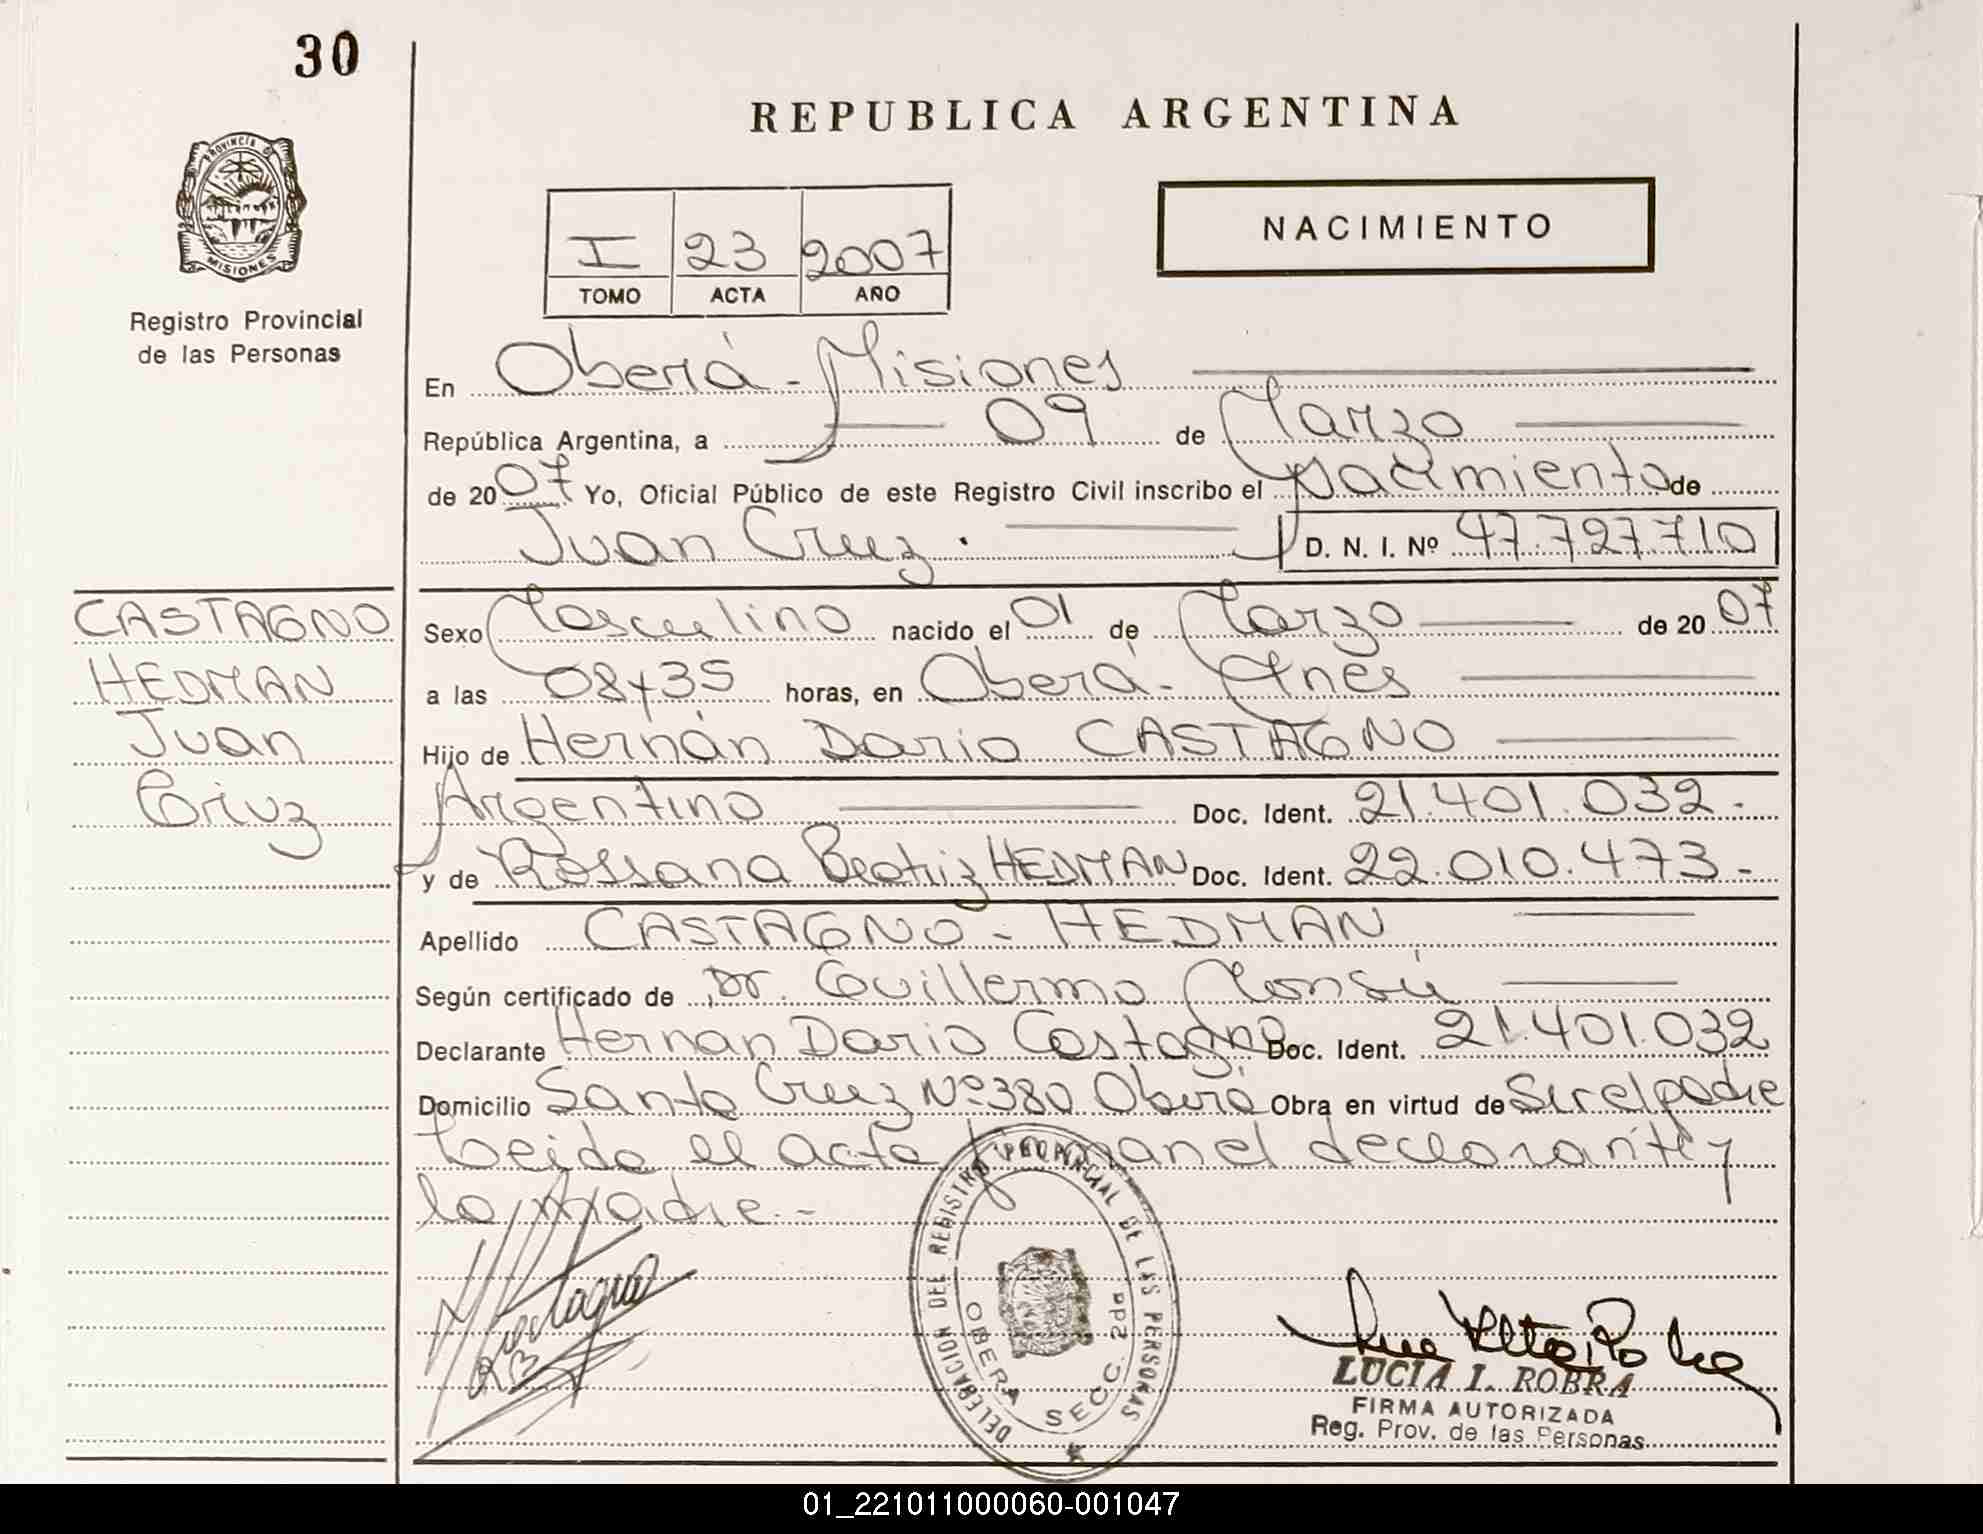 30
REPUBLICA ARGENTINA
PROVINCIA DE
MISIONES
Registro Provincial
de las Personas
I 23 2007
TOMO ACTA AÑO
NACIMIENTO
En Oberá - Misiones
República Argentina, a 09 de Marzo
de 2007 Yo, Oficial Público de este Registro Civil inscribo el Nacimiento de
Juan Cruz. D. N. I. Nº 47.727.710
CASTAGNO
HEDMAN
Juan
Cruz
Sexo Masculino nacido el 01 de Marzo de 2007
a las 08y35 horas, en Oberá - Mnes
Hijo de Hernán Dario CASTAGNO
Argentino Doc. Ident. 21.401.032.-
y de Rossana Beatriz HEDMAN Doc. Ident. 22.010.473.-
Apellido CASTAGNO - HEDMAN
Según certificado de Dr. Guillermo Monsú
Declarante Hernan Dario Castagno Doc. Ident. 21.401.032
Domicilio Santa Cruz Nº 380 Oberá Obra en virtud de Ser el padre
Leida el acta firman el declarante y
la madre.-
DELEGACION DEL REGISTRO PROVINCIAL DE LAS PERSONAS
OBERA SECC. 2da
LUCIA I. ROBRA
FIRMA AUTORIZADA
Reg. Prov. de las Personas
01_221011000060-001047